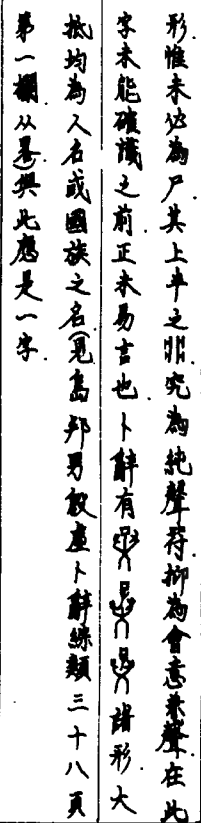 形惟未必為尸其上半之非究為純聲符抑為會意兼聲在此
字未能確識之前正未易言也卜辭有諸形大
抵均為人名或國族之名(見島邦男殷虛卜辭綜類三十八頁
第一欄从𢀩)與此應是一字